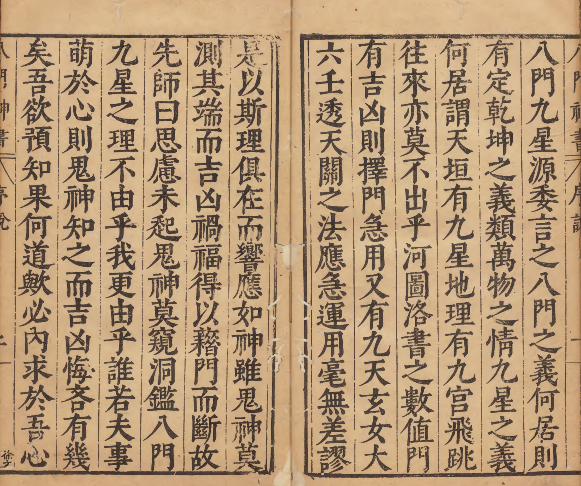 八門九星源委言之八門之義何居則
有定乾坤之義類萬物之情九星之義
何居謂天垣有九星地理有九宮飛跳
往來亦莫不出乎河圖洛書之數值門
有吉凶則擇門急用又有九天玄女大
六壬透天關之法應急運用毫無差謬
是以斯理俱在而響應如神雖鬼神莫
測其端而吉凶禍福得以藉門而斷故
先師曰思慮未起鬼神莫窺洞鑑八門
九星之理不由乎我更由乎誰若夫事
萌於心則鬼神知之而吉凶悔吝有幾
矣吾欲預知果何道歟必內求於吾心
八門神書 序說